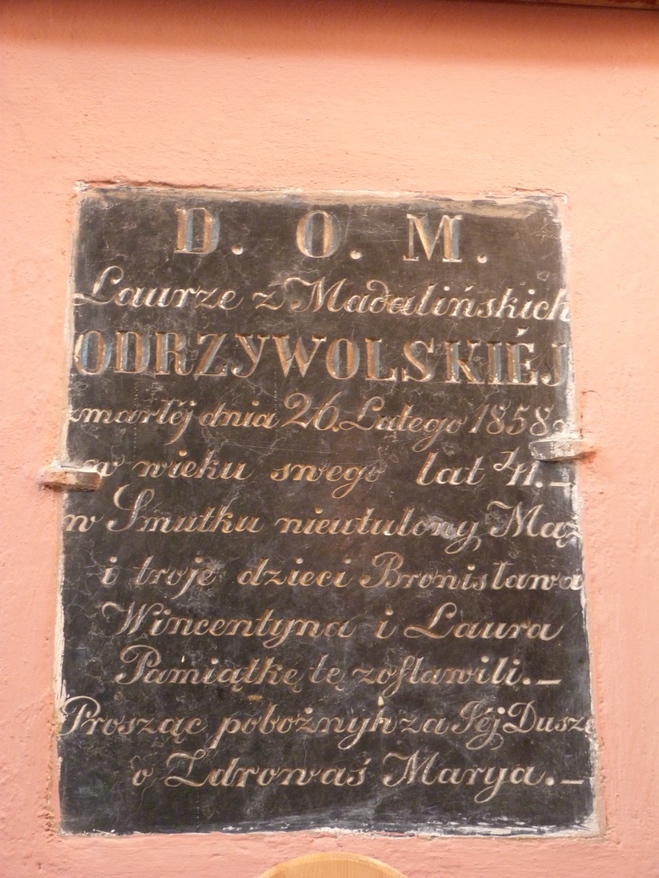 D. O. M.
Laurze z Madalińskich
ODRZYWOLSKIÉJ
zmarłéj dnia 26. Lutego 1858
w wieku swego lat
w Smutku nieutulony Mąż
i troje dzieci Bronisława
Wincentyna i Laura
Pamiątkę tę zostawili.–
Prosząc pobożnyh za Jéj Duszę
o Zdrowaś Marya.–